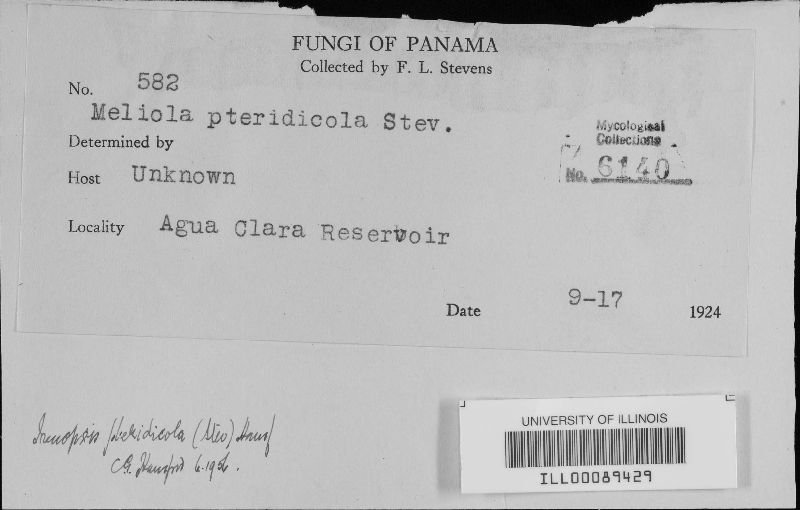 FUNGI OF PANAMA
Collected by F. L. Stevens
No. 582
Meliola pteridicola Stev.
Mycological
Collections
No. 6140
Determined by
Host Unknown
Locality Agua Clara Reservoir
Date 9-17 1924
Irenopsis pteridicola (Stev) Hansf
C.G. Hansford
UNIVERSITY OF ILLINOIS
ILL00089429